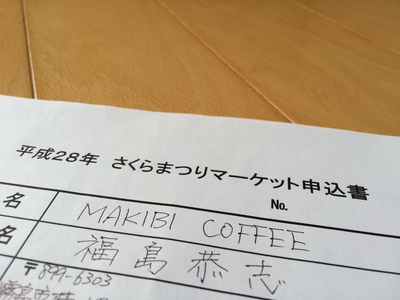 平成28年 さくらまつりマーケット申込書
No.
名 MAKIBI COFFEE
名 福島恭志
〒899-6303
霧島市